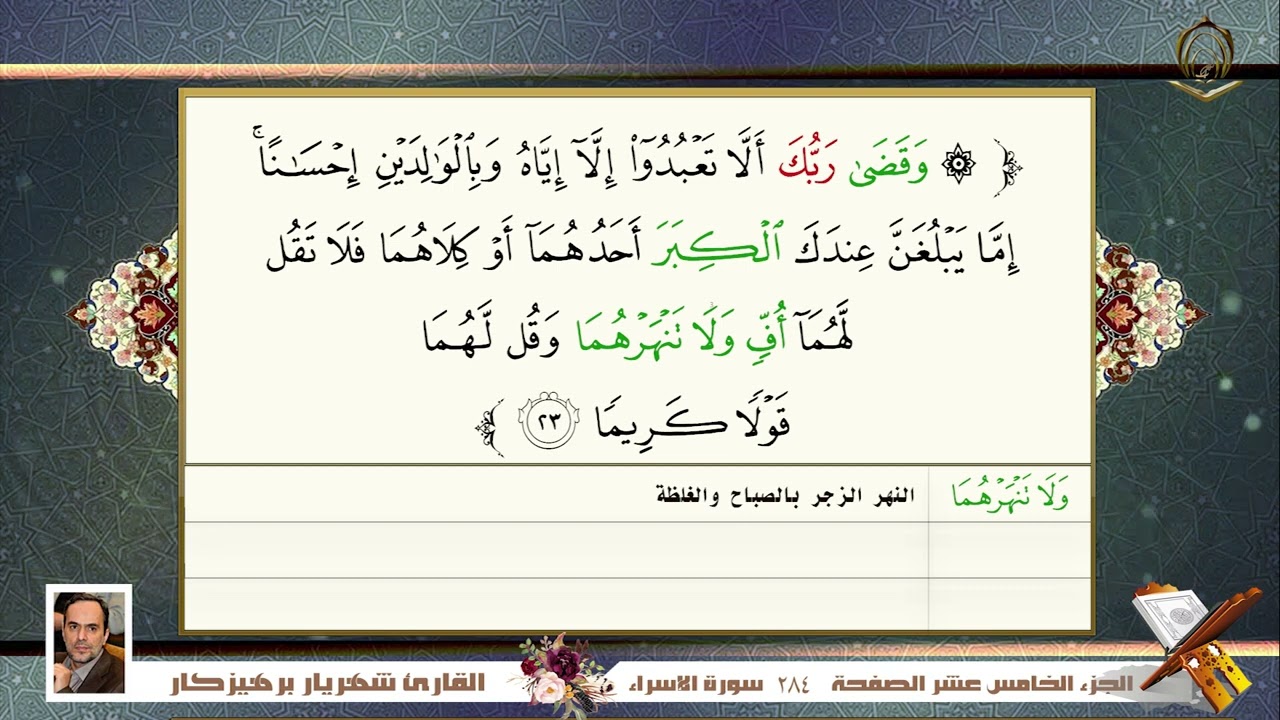 ﴿ ۞ وَقَضَىٰ رَبُّكَ أَلَّا تَعۡبُدُوٓاْ إِلَّآ إِيَّاهُ وَبِٱلۡوَٰلِدَيۡنِ إِحۡسَٰنًاۚ
إِمَّا يَبۡلُغَنَّ عِندَكَ ٱلۡكِبَرَ أَحَدُهُمَآ أَوۡ كِلَاهُمَا فَلَا تَقُل
لَّهُمَآ أُفّٖ وَلَا تَنۡهَرۡهُمَا وَقُل لَّهُمَا
قَوۡلٗا كَرِيمٗا ٢٣ ﴾
وَلَا تَنۡهَرۡهُمَا النهر الزجر بالصباح والغلظة
الجزء الخامس عشر الصفحة ٢٨٤ سورة الاسراء القارئ شهريار برهيزكار